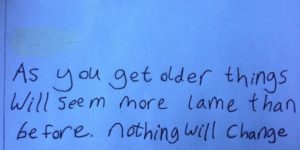 As you get older things
will seem more lame than
before. nothing will change